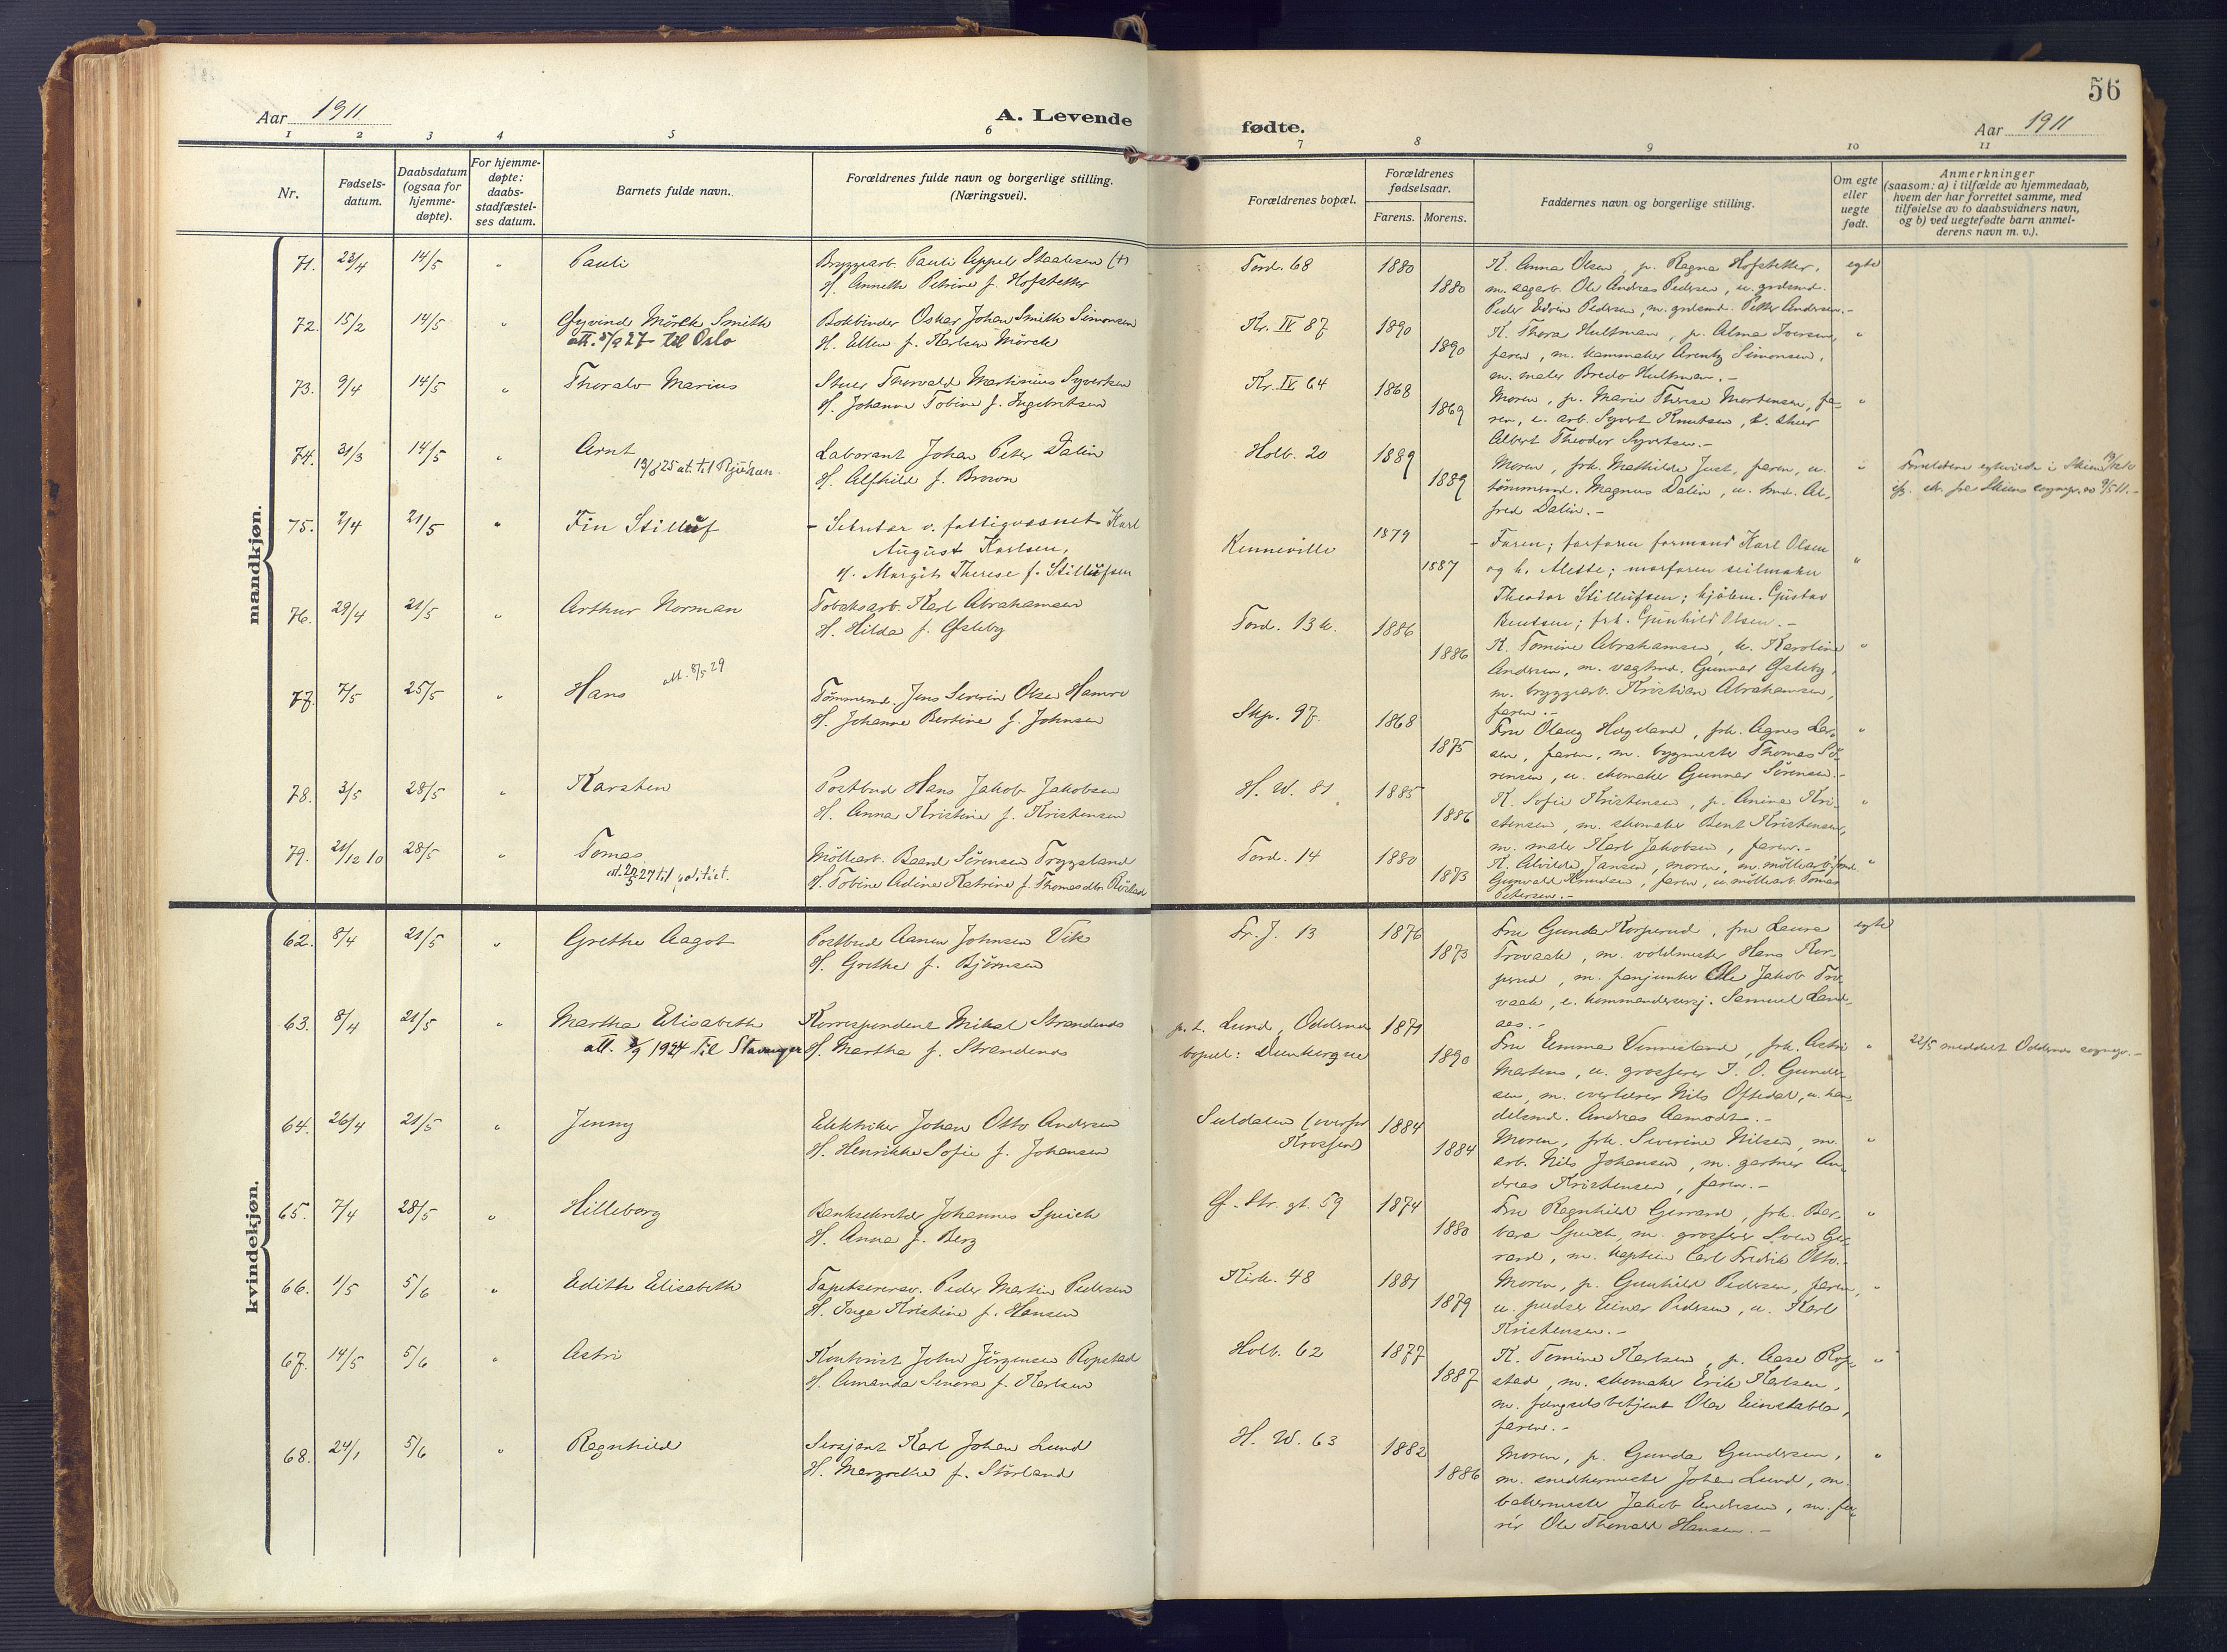 56
Aar 1911
A. Levende
fødte.
Aar 1911
1 2 3 4 5 6 7 8 9 10 11
Nr.
Fødsels-
datum.
Daabsdatum
(ogsaa for
hjemme-
døpte).
For hjemme-
døpte:
daabs-
stadfæstel-
ses datum.
Barnets fulde navn.
Forældrenes fulde navn og borgerlige stilling.
(Næringsvei).
Forældrenes bopæl.
Forældrenes
fødselsaar.
Farens. Morens.
Faddernes navn og borgerlige stilling.
Om egte
eller
uegte
født.
Anmerkninger
(saasom: a) i tilfælde av hjemmedaab,
hvem der har forrettet samme, med
tilføielse av to daabsvidners navn,
og b) ved uegtefødte barn anmel-
derens navn m. v.).
mandkjøn.
71. 23/4 14/5 " Pauli
Bryggearb. Pauli Appel Staalesen (+)
H. Annette Petrine f. Hofstetter
Tord. 68 1880 1880
K. Anna Olsen, p. Ragna Hofstetter,
m. sagarb. Ole Andreas Pedersen, u. gulsmd.
Peder Edvin Pedersen, m. gulsmd. Petter Andersen.-
egte
72. 15/2 14/5 " Øyvind Mörch Smith
att. 5/9 27 til Oslo
Bokbinder Oskar Johan Smith Simonsen
H. Ellen f. Karlsen Mörch
Kr. IV 87 1890 1890
K. Thora Hultman, p. Alma Iversen,
faren, m. kammaker Arentz Simonsen,
m. maler Bredo Hultman.-
"
73. 9/4 14/5 " Thoralv Marius
Stuer Thorvald Martinius Syvertsen
H. Johanne Tobine f. Ingebretsen
Kr. IV 64 1868 1869
Moren, p. Marie Therese Mortensen, fa-
ren, e. arb. Syvert Knutsen, u. stuer
Albert Theodor Syvertsen.-
"
74. 31/3 14/5 " Arnt
19/8 25 at. til Rjukan.
Laborant Johan Peter Dalin
H. Alfhild f. Brown
Holb. 20 1889 1889
Moren, frk. Mathilde Just, faren, u.
tømmermd. Magnus Dalin, u. hmd. Al-
fred Dalin.-
"
Forældrene egteviede i Skien
75. 2/4 21/5 " Fin Stilluf
- Sekretær v. fattigvæsnet Karl
August Karlsen,
H. Margit Therese f. Stillufsen
Kenneville 1879 1887
- Faren; farfaren formand Karl Olsen
og h. Alette; morfaren seilmaker
Theodor Stillufsen; kjøbm. Gustav
Bentsen; frk. Gunhild Olsen.-
"
76. 29/4 21/5 " Arthur Norman
Tobaksarb. Karl Abrahamsen
H. Hilda f. Østeby
Tord. 13 b. 1886 1886
K. Tomine Abrahamsen, k. Karoline
Andersen, m. vagtmd. Gunnar Østeby,
m. bryggearb. Kristian Abrahamsen,
faren.-
"
77. 7/5 25/5 " Hans
att. 8/5 29
Tømmermd. Jens Severin Olsen Hamre
H. Johanne Bertine f. Johnsen
Skp. 97 1868 1875
Fru Olaug Hægeland, frk. Agnes Lar-
sen, faren, m. bygmester Thomas Sø-
rensen, u. skomaker Gunnar Sørensen.-
"
78. 3/5 28/5 " Karsten
Postbud Hans Jakob Jakobsen
H. Anna Kristine f. Kristensen
H. W. 81 1885 1886
K. Sofie Kristensen, p. Anine Kri-
stensen, m. skomaker Bent Kristensen,
m. maler Karl Jakobsen, faren.-
"
79. 21/12 10 28/5 " Tomas
at. 20/5 27 til politiet.
Mölleiarb. Baard Sørensen Tryggsland
H. Tobine Adine Katrine f. Thomasdtr. Röistad
Tord. 14 1880 1873
K. Alvilde Jansen, moren, m. mölleiarb.
Gunvald Knudsen, faren, u. mölleiarb. Tomas
Petersen.-
"
kvindekjøn.
62. 8/4 21/5 " Grethe Aagot
Postbud Aanen Johnsen Vik
H. Grethe f. Bjørnsen
Fr. J. 13 1876 1873
Fru Gunda Korperud, fru Laura
Trovaak, m. voldmester Hans Kor-
perud, m. fanjunker Ole Jakob Tro-
vaak, e. kommandersersj. Samuel Land-
aas.-
egte
63. 8/4 21/5 " Martha Elisabeth
att. 3/9 1924 til Stavanger
Korrespondent Mikal Strandenæs
H. Martha f. Strandenæs
p.t. Lund, Oddernes
bopæl: Dunkerque
1871 1890
Fru Emma Vennesland, frk. Astri
Martens, u. grosserer T. O. Gunder-
sen, m. overlærer Nils Oftedal, u. han-
delsmd. Andreas Aamodt.-
"
22/5 meddelt Oddernes sognepr.-
64. 26/4 21/5 " Jenny
Elektriker Johan Otto Andersen
H. Henrikke Sofie f. Johansen
Suldalen (overfor
Krossen)
1884 1884
Moren, frk. Severine Nilsen, m.
arb. Nils Johansen, m. gartner An-
dreas Kristensen, faren.-
"
65. 7/4 28/5 " Hilleborg
Banksekretær Johannes Speich
H. Anna f. Berg
Ø. Str. gt. 59 1874 1880
Fru Ragnhild Gerrard, frk. Bar-
bara Speich, m. grosserer Sven Ger-
rard, m. kaptein Carl Fredrik Otto.-
"
66. 1/5 5/6 " Edith Elisabeth
Tapetserersv. Peder Martin Pedersen
H. Inga Kristine f. Hansen
Kirk. 48 1881 1879
Moren, p. Gunhild Pedersen, faren,
u. pudser Einar Pedersen, u. Karl
Kristensen.-
"
67. 14/5 5/6 " Astri
Kontorist John Jörgensen Ropstad
H. Amanda Senora f. Karlsen
Holb. 62 1877 1887
K. Tomine Karlsen, p. Aase Rop-
stad, m. skomaker Erik Karlsen,
m. fængselsbetjent Olav Einstabla,
faren.-
"
68. 24/1 5/6 " Ragnhild
Sersjant Karl Johan Lund
H. Margrethe f. Störland
H. W. 63 1882 1886
Moren, p. Gunda Gundersen,
m. snedkermester Johan Lund, m.
bakermester Jakob Endresen, m. fu-
rér Ole Thorvald Hansen.-
"